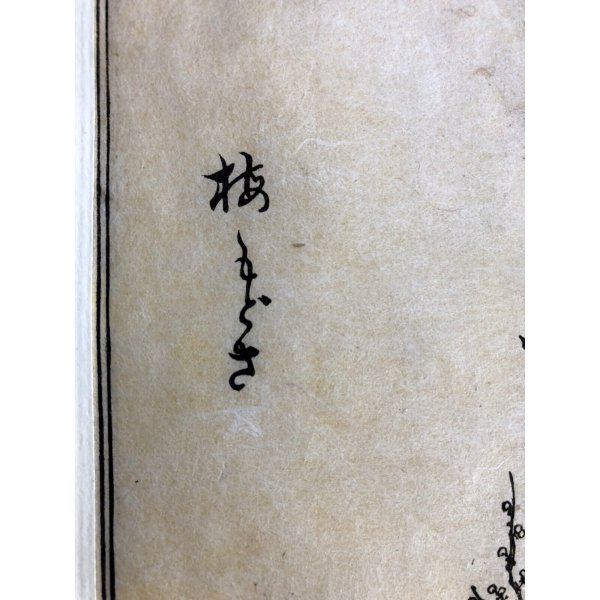 梅もどき